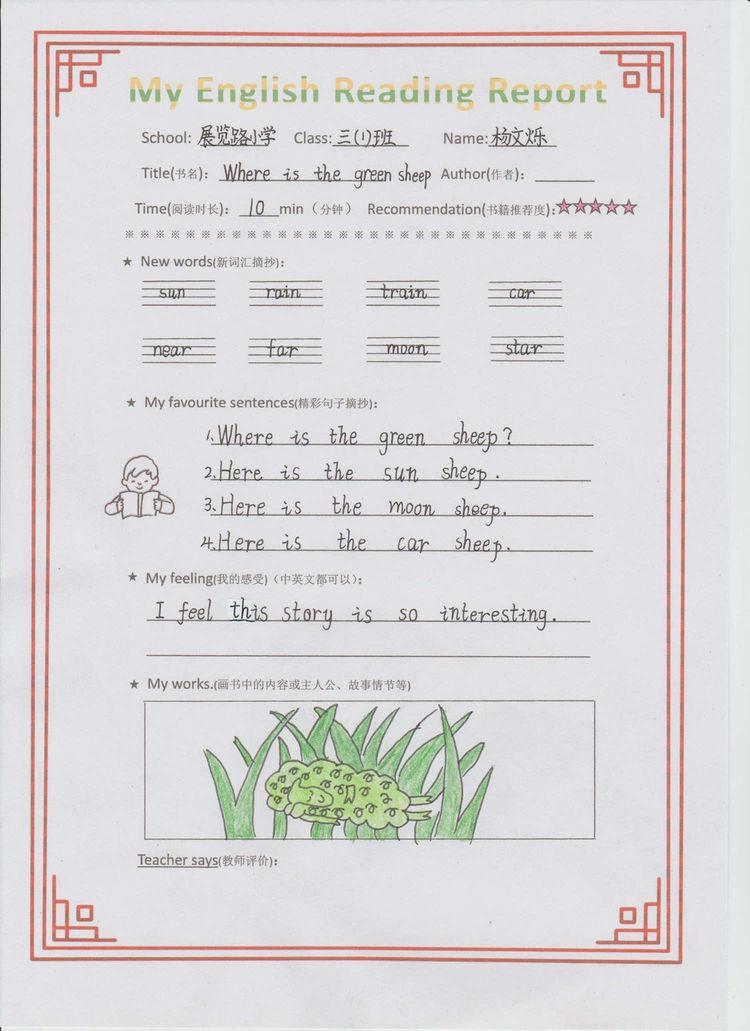 My English Reading Report
School: 展览路小学 Class: 三(1)班 Name: 杨文烁
Title(书名): Where is the green sheep Author(作者):
Time(阅读时长): 10 min（分钟） Recommendation(书籍推荐度):☆☆☆☆☆
※ ※ ※ ※ ※ ※ ※ ※ ※ ※ ※ ※ ※ ※ ※ ※ ※ ※ ※ ※ ※ ※ ※ ※ ※ ※ ※ ※ ※ ※ ※
★ New words(新词汇摘抄):
sun rain train car
near far moon star
★ My favourite sentences(精彩句子摘抄):
1. Where is the green sheep?
2. Here is the sun sheep.
3. Here is the moon sheep.
4. Here is the car sheep.
★ My feeling(我的感受)（中英文都可以）:
I feel this story is so interesting.
★ My works.(画书中的内容或主人公、故事情节等)
Teacher says(教师评价):